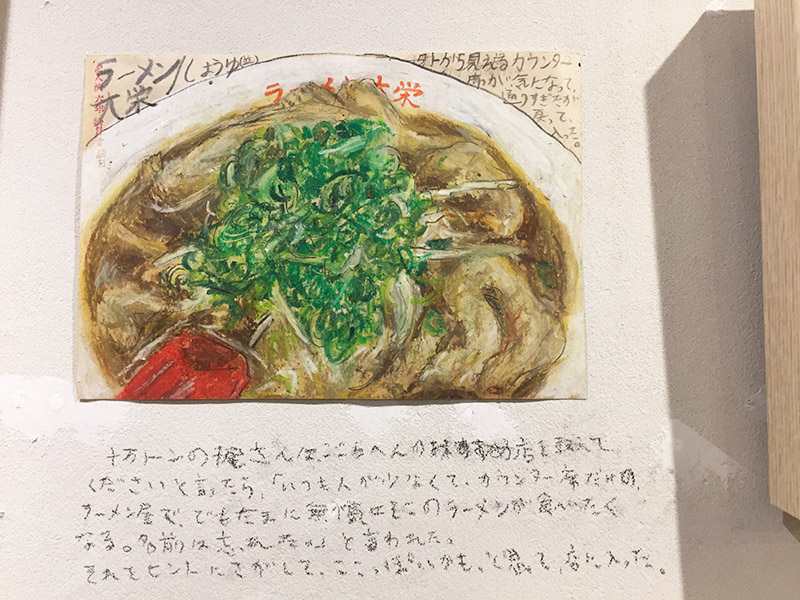 ラーメン しょうゆ(並)
大栄
外から見えるカウンター
席が気になって、
通りすぎたが
戻って、
入った。
ラーメン 大栄
十万トンの梶さんはここらへんのおすすめの店を教えて
くださいと言ったら、「いつも人が少なくて、カウンター席だけの、
ラーメン屋で、でもたまに無性にそこのラーメンが食べたく
なる。名前は忘れたわ」と言われた。
それをヒントにさがして、ここっぽいかも、と思って、店に入った。